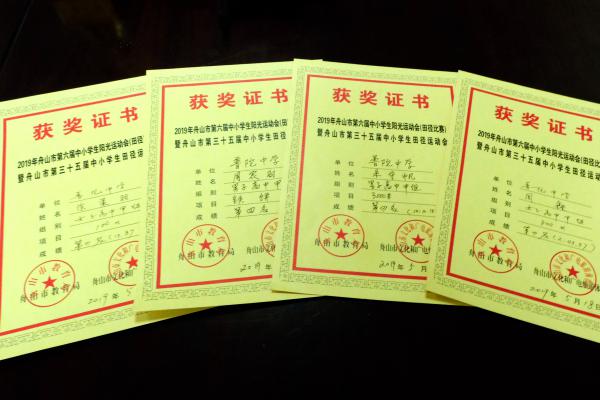 获奖证书
2019年舟山市第六届中小学生阳光运动会(田径
暨舟山市第三十五届中小学生田径运
单位 普陀中学
姓名
组别 女子高中甲组
项目 100m
成绩 第四名
舟山市教育局
2019年5
获奖证书
2019年舟山市第六届中小学生阳光运动会(田
暨舟山市第三十五届中小学生田径
单位 普陀中学
姓名
组别 男子高中甲
项目 铁饼
成绩 第四名
舟山市教育局 舟山市文化和
2019年
获奖证书
2019年舟山市第六届中小学生阳光运动会(田径比赛)
暨舟山市第三十五届中小学生田径运动会
单位 普陀中学
姓名
组别 男子高中甲组
项目 3000m
成绩 第四名
舟山市教育局 舟山市文化和广电
2019年5月
获奖证书
2019年舟山市第六届中小学生阳光运动会(田径比赛)
暨舟山市第三十五届中小学生田径运动会
单位 普陀中学
姓名 周
组别 女子高中甲组
项目
成绩 第四名
舟山市教育局 舟山市文化和广电旅游体
2019年5月18日